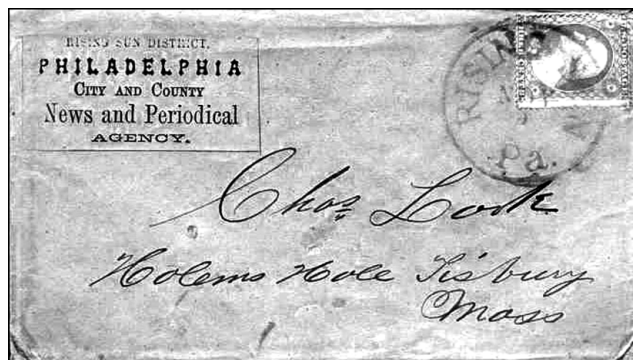 RISING SUN DISTRICT,
PHILADELPHIA
CITY AND COUNTY
News and Periodical
AGENCY.
RISING SUN
Pa.
Chas Look
Holems Hole Tisbury
Mass